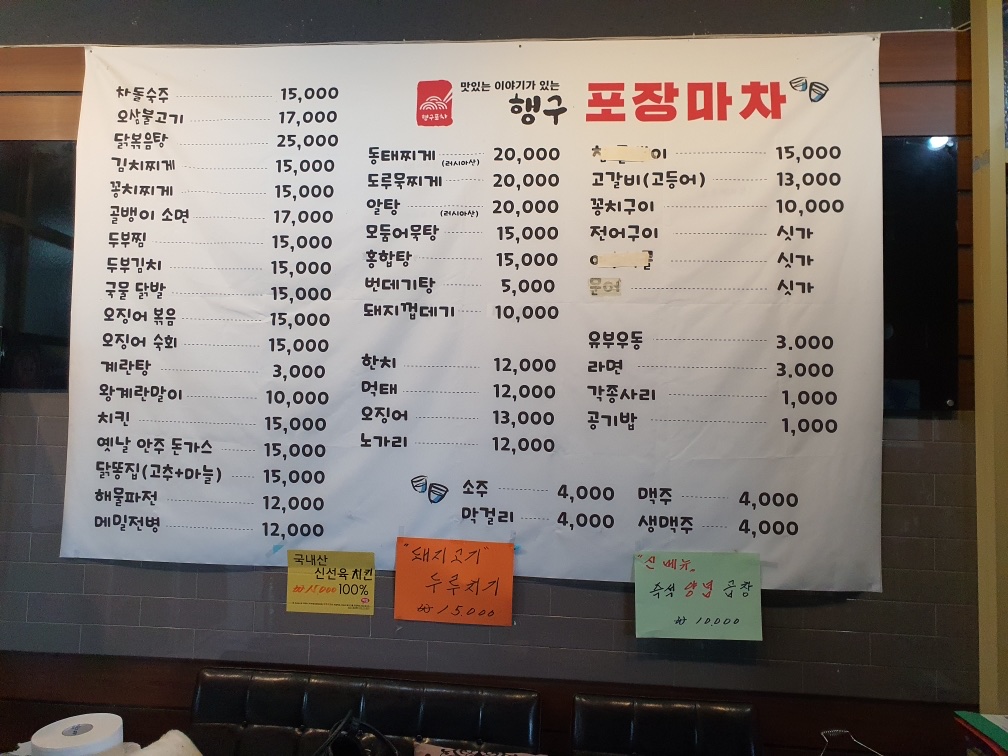 맛있는 이야기가 있는
행구 포장마차
행구포차
차돌숙주 15,000
오삼불고기 17,000
닭볶음탕 25,000
김치찌게 15,000
꽁치찌게 15,000
골뱅이 소면 17,000
두부찜 15,000
두부김치 15,000
국물 닭발 15,000
오징어 볶음 15,000
오징어 숙회 15,000
계란탕 3,000
왕계란말이 10,000
치킨 15,000
옛날 안주 돈가스 15,000
닭똥집(고추+마늘) 15,000
해물파전 12,000
메밀전병 12,000
동태찌게 (러시아산) 20,000
도루묵찌게 20,000
알탕 (러시아산) 20,000
모둠어묵탕 15,000
홍합탕 15,000
번데기탕 5,000
돼지껍데기 10,000
한치 12,000
먹태 12,000
오징어 13,000
노가리 12,000
15,000
고갈비(고등어) 13,000
꽁치구이 10,000
전어구이 싯가
싯가
문어 싯가
유부우동 3.000
라면 3.000
각종사리 1,000
공기밥 1,000
소주 4,000
막걸리 4,000
맥주 4,000
생맥주 4,000
국내산
신선육 치킨
₩15000 100%
"돼지고기"
두루치기
₩15.000
"신메뉴"
즉석 양념 곱창
₩10.000